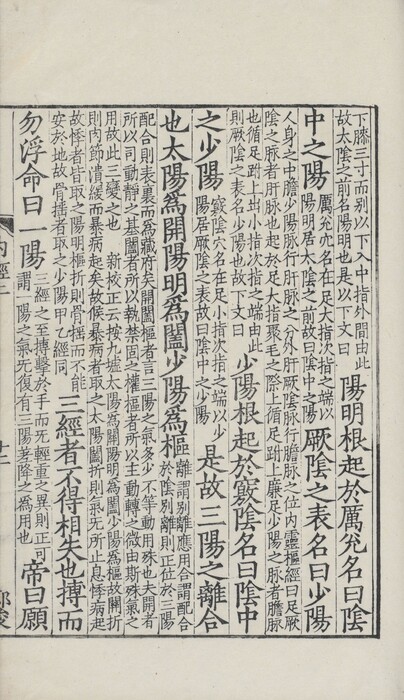 下膝三寸而别以下入中指外間由此
故太陰之前名陽明也是以下文曰
陽明根起於厲兌名曰陰
中之陽
厲兌穴名在足大指次指之端以
陽明居太陰之前故曰陰中之陽
厥陰之表名曰少陽
人身之中膽少陽脉行肝脉之分外肝厥陰脉行膽脉之位内靈樞經曰足厥
陰之脉者肝脉也起於足大指聚毛之際上循足跗上廉足少陽之脉者膽脉
也循足跗上出小指次指之端由此
則厥陰之表名少陽也故下文曰
少陽根起於竅陰名曰陰中
之少陽
竅陰穴名在足小指次指之端以少
陽居厥陰之表故曰陰中之少陽
是故三陽之離合
也太陽爲開陽明爲闔少陽爲樞
離謂别離應用合謂配合
於陰别離則正位於三陽
配合則表裏而爲藏府矣開闔樞者言三陽之氣多少不等動用殊也夫開者
所以司動靜之基闔者所以執禁固之權樞者所以主動轉之微由斯殊氣之
用故此三變之也 新校正云按九墟太陽爲關陽明爲闔少陽爲樞故關折
則肉節潰緩而暴病起矣故候暴病者取之太陽闔折則氣无所止息悸病起
故悸者皆取之陽明樞折則骨揺而不能
安於地故骨揺者取之少陽甲乙經同
三經者不得相失也搏而
勿浮命曰一陽
三經之至搏擊於手而无輕重之異則正可
謂一陽之氣无復有三陽差降之爲用也
帝曰願